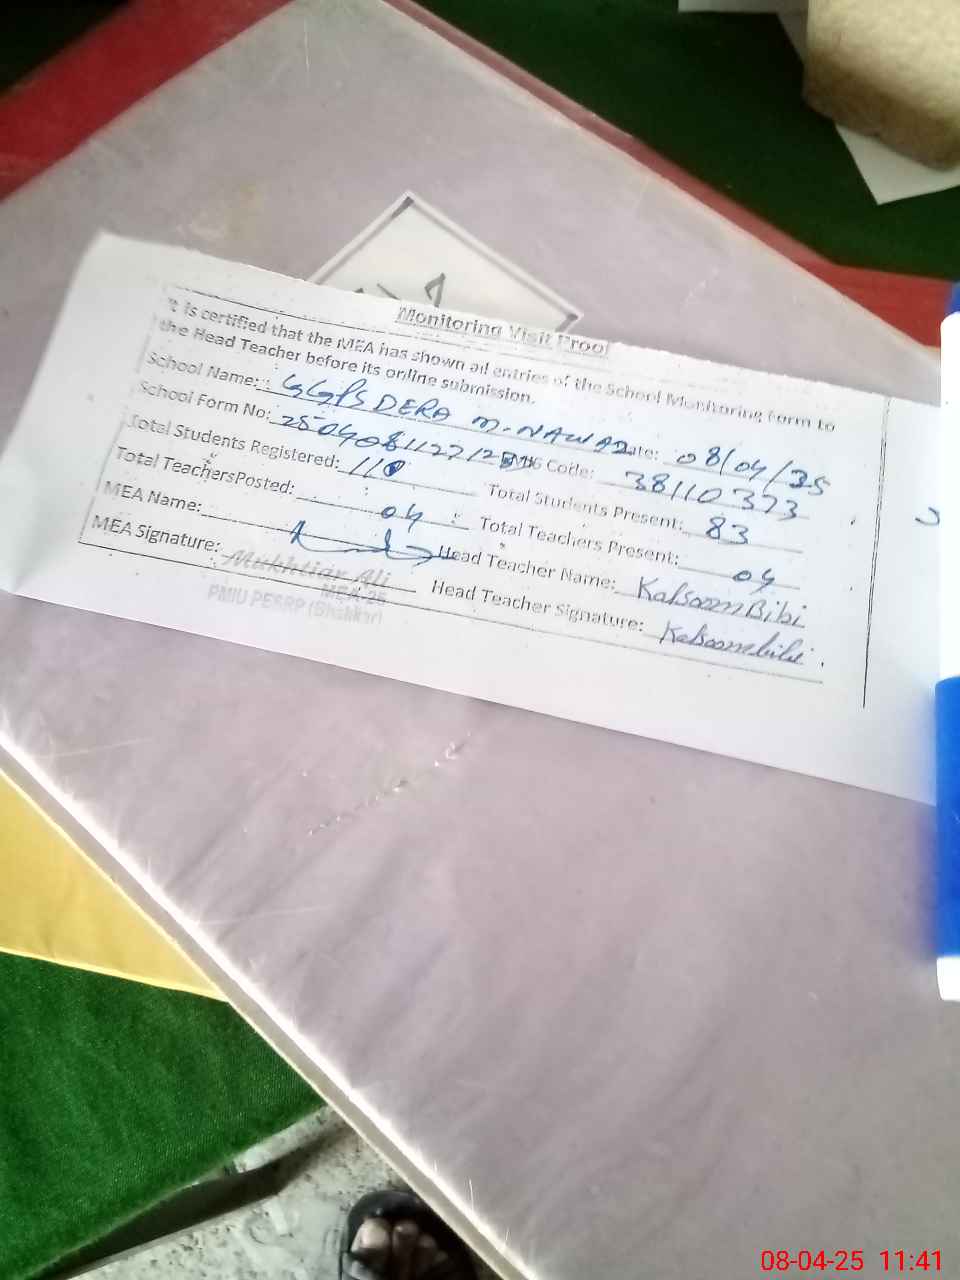 Monitoring Visit Proof
It is certified that the MEA has shown all entries of the School Monitoring Form to
the Head Teacher before its online submission.
School Name: GGPS DERA M.NAWAZ Date: 08/04/25
School Form No: EMIS Code: 38110373
Total Students Registered: 110 Total Students Present: 83
Total TeachersPosted: 04 Total Teachers Present: 04
MEA Name: Head Teacher Name: Kalsoom Bibi
MEA Signature: Head Teacher Signature: Kalsoom bibi.
Mukhtiar Ali
MEA-25
PMIU PESRP (Bhakkar)
08-04-25 11:41